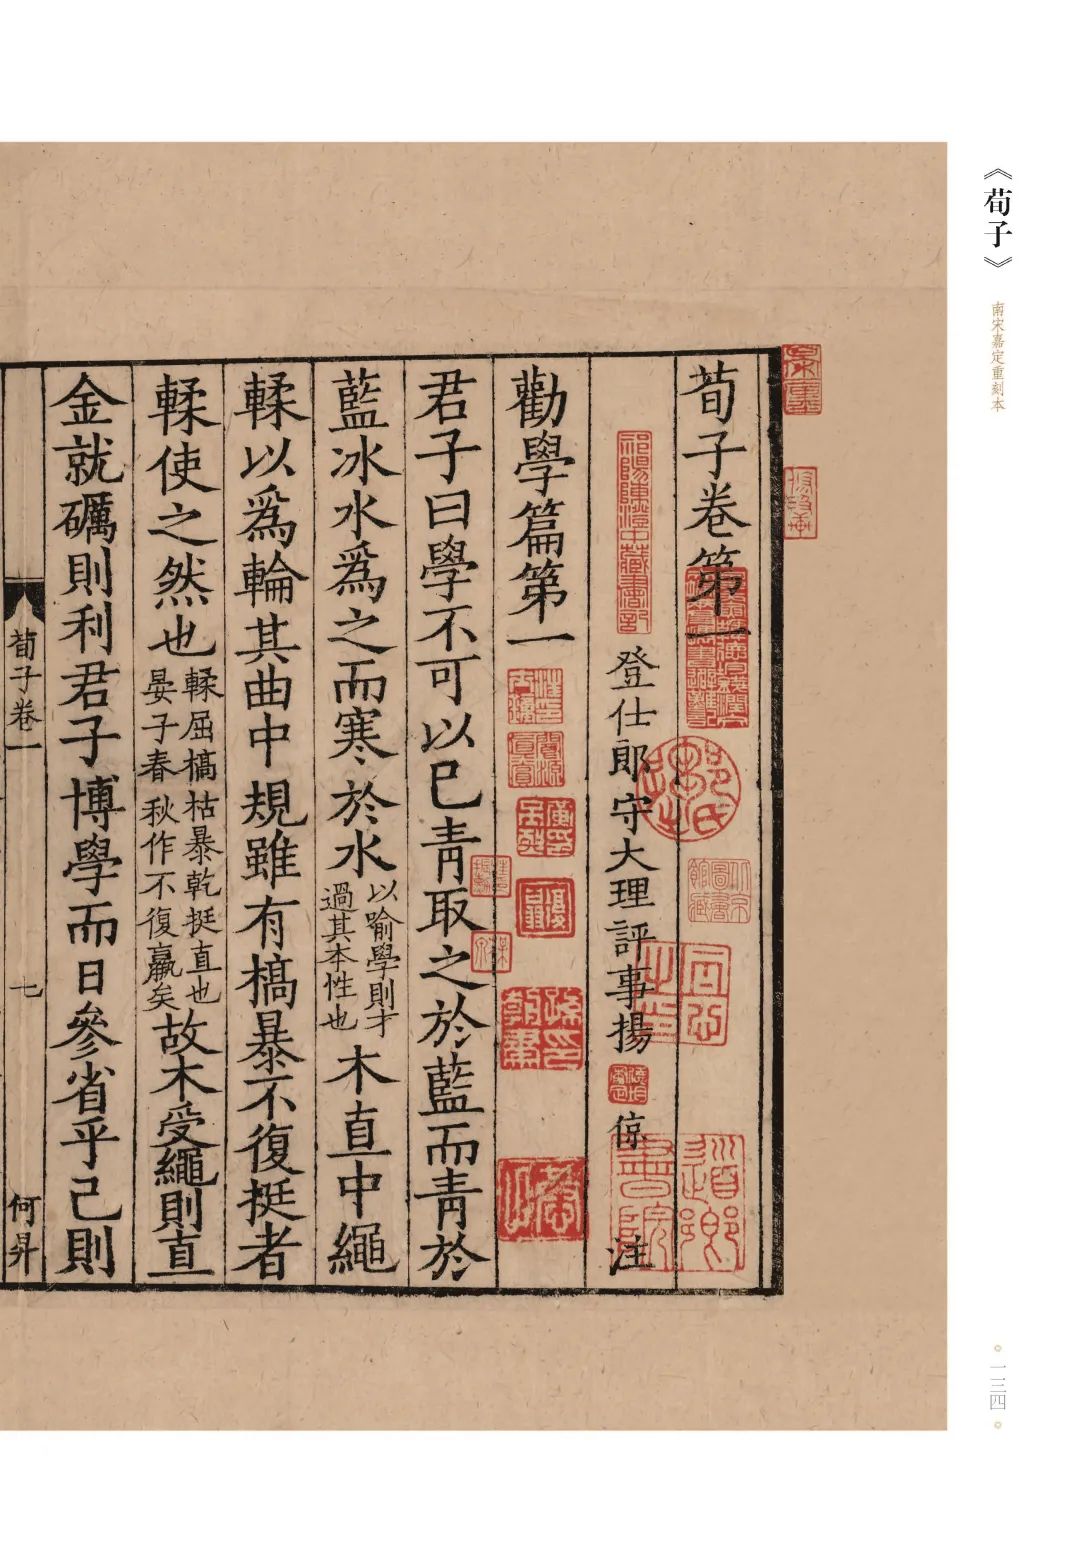 《荀子》
南宋嘉定重刻本
一三四
荀子卷第一
祁陽陳澄中藏書記
登仕郎守大理評事揚倞注
勸學篇第一
君子曰學不可以已青取之於藍而青於
藍冰水爲之而寒於水以喻學則才過其本性也木直中繩
輮以爲輪其曲中規雖有槁暴不復挺者
輮使之然也輮屈槁枯暴乾挺直也晏子春秋作不復贏矣故木受繩則直
金就礪則利君子博學而日參省乎己則
荀子卷一 七 何昇